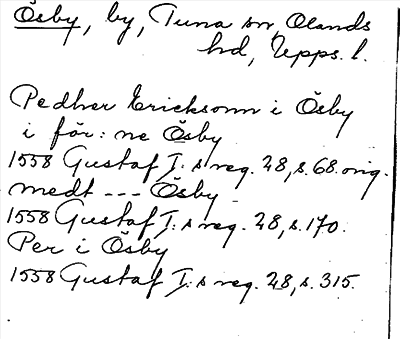 Ösby, by, Tuna sn, Olands
hd, Upps. l.
Pedher Ericksonn i Ösby
i för: ne Ösby
1558 Gustaf I:s reg. 28, s. 68. orig.
medt --- Ösby
1558 Gustaf I:s reg. 28, s. 170.
Per i Ösby
1558 Gustaf I:s reg. 28, s. 315.